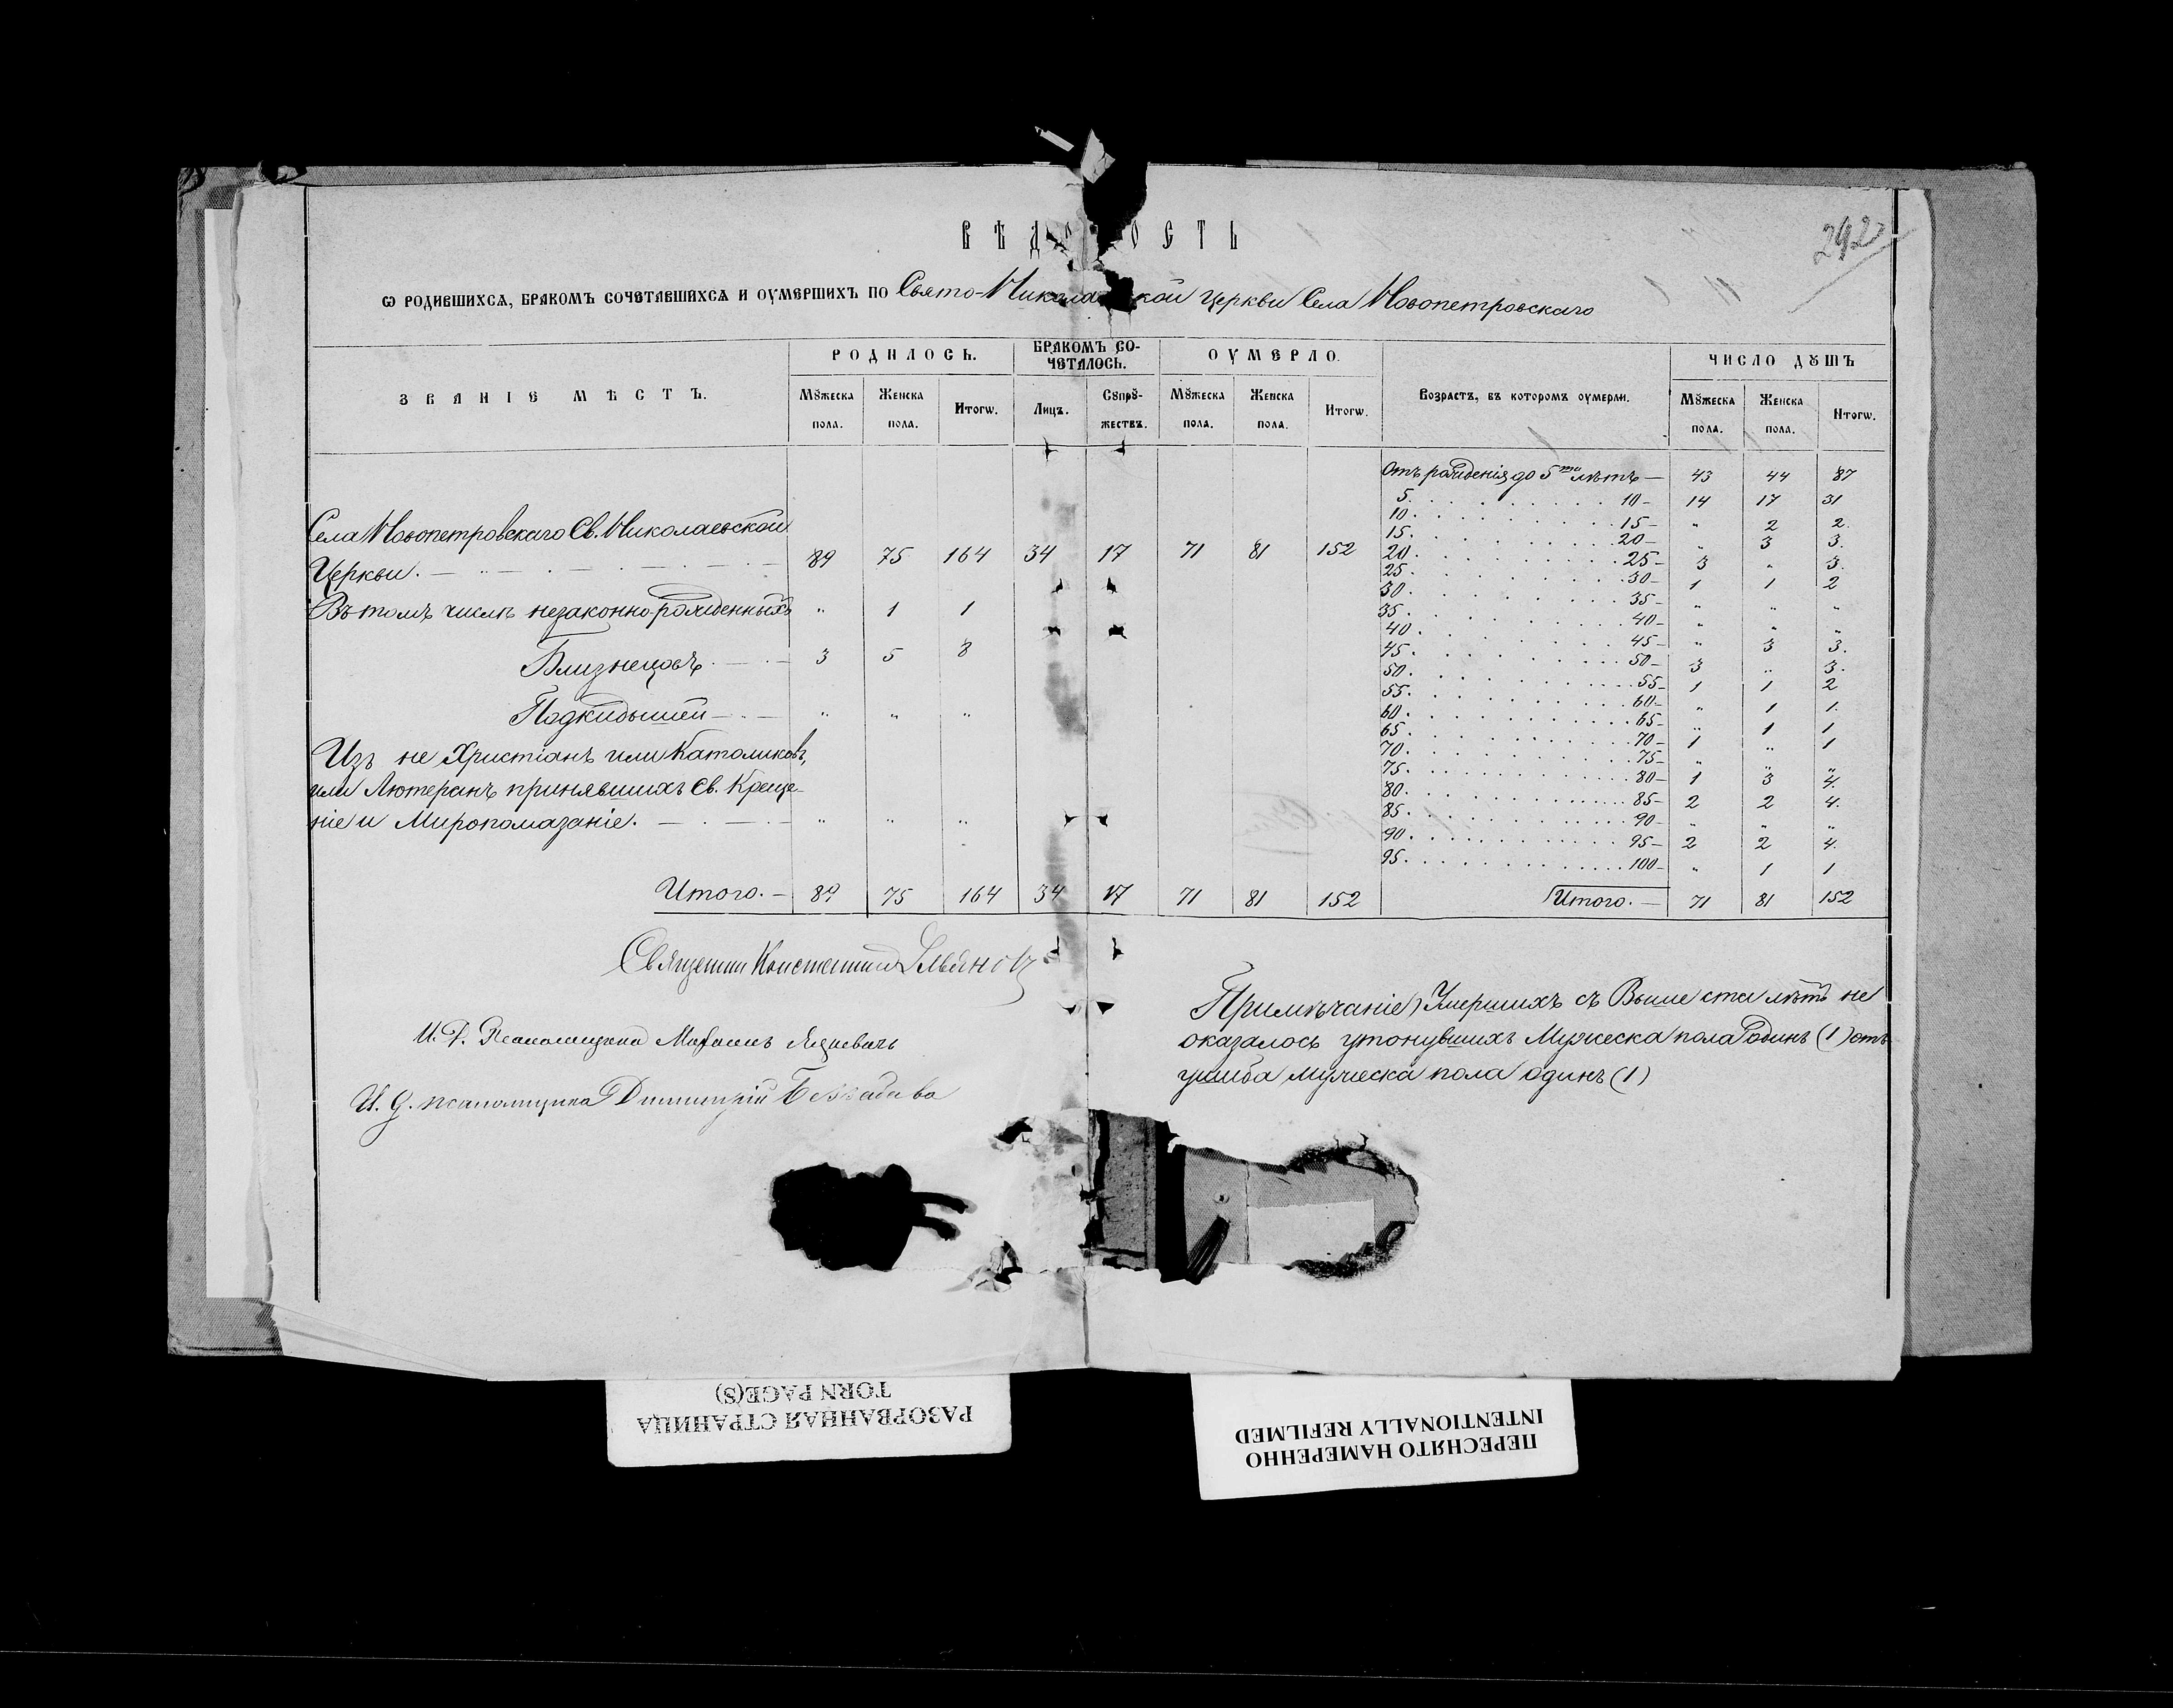 292
ВѢД ОСТЬ
Ѡ РОДИВШИХСѦ, БРАКОМЪ СОЧЕТАВШИХСѦ И ОУМЕРШИХЪ ПО Свято-Никола кой церкви Села Новопетровскаго
ЗВАНІЕ МѢСТЪ. РОДИЛОСЬ. БРАКОМЪ СО-ЧЕТАЛОСЬ. ОУМЕРЛО. Возрастъ, въ которомъ оумерли. ЧИСЛО ДꙊШЪ
Мꙋжеска пола. Женска пола. Итогѡ. Лицъ. Сꙋпрꙋ-жествъ. Мꙋжеска пола. Женска пола. Итогѡ. Мꙋжеска пола. Женска пола. Итогѡ.
Села Новопетровскаго Св. Николаевской
Церкви. 89 75 164 34 17 71 81 152
Въ томъ числѣ незаконно-рожденныхъ " 1 1
Близнецовъ 3 5 8
Подкидышей " " "
Изъ не Христіанъ или Католиковъ,
или Лютеранъ принявшихъ Св. Креще-
ніе и Миропомазаніе. " " "
Итого. 89 75 164 34 17 71 81 152
Отъ рожденія до 5ти лѣтъ 43 44 87
5. 10 14 17 31
10. 15 " 2 2.
15. 20 " 3 3.
20. 25 3 " 3.
25. 30 1 1 2
30. 35 " " "
35. 40 " " "
40. 45 " 3 3.
45. 50 3 " 3.
50. 55 1 1 2
55. 60 " 1 1.
60. 65 " 1 1
65. 70 1 " 1
70. 75 " " "
75. 80 1 3 4.
80. 85 2 2 4.
85. 90 " " "
90. 95 2 2 4.
95. 100 " 1 1
Итого. 71 81 152
Священник Константин
И. Д. Псаломщика
И. д. псаломщика Димитрій
Примѣчаніе) Умершихъ съ Выше ста лѣтъ не
оказалось утонувшихъ Мужеска пола одинъ (1) отъ
ушиба Мужеска пола одинъ (1)
РАЗОРВАННАЯ СТРАНИЦА
TORN PAGE(S)
ПЕРЕСНЯТО НАМЕРЕННО
INTENTIONALLY REFILMED